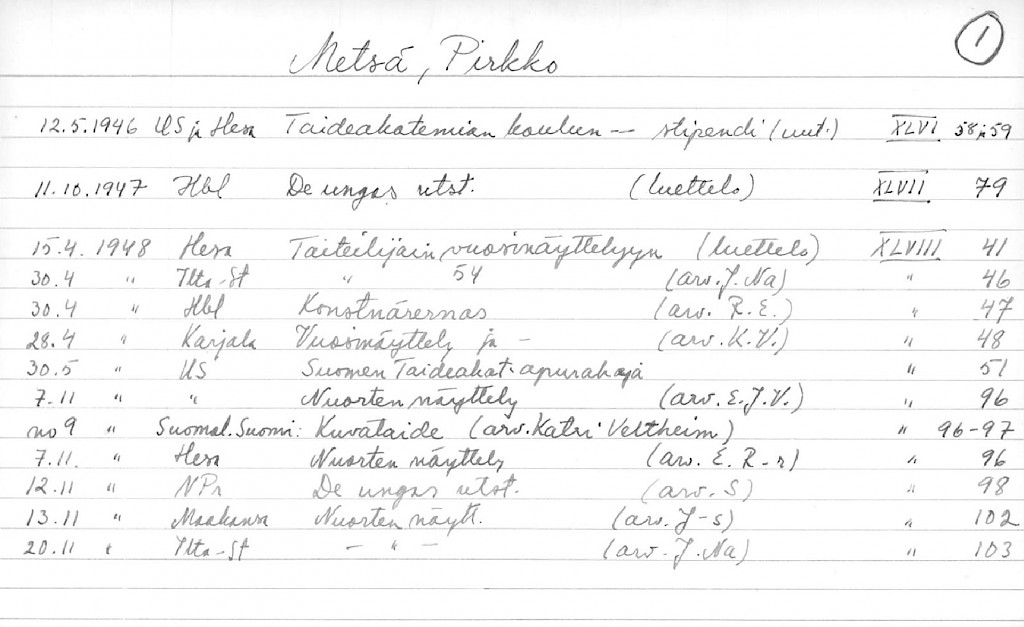 1
Metsä, Pirkko
12.5.1946 US ja Hesa Taideakatemian koulun -- stipendi (uut.) XLVI 58 ja 59
11.10.1947 Hbl De ungas utst. (luettelo) XLVII 79
15.4. 1948 Hesa Taiteilijain vuosinäyttelyyn (luettelo) XLVIII 41
30.4 " Ilta-St " 54 (arv. J. Na) " 46
30.4 " Hbl Konstnärernas (arv. R. E.) " 47
28.4 " Karjala Vuosinäyttely ja - (arv. K. V.) " 48
30.5 " US Suomen Taideakat. apurahoja " 51
7.11 " " Nuorten näyttely (arv. E. J. V.) " 96
no 9 " Suomal. Suomi: Kuvataide (arv. Katri Veltheim) " 96-97
7.11. " Hesa Nuorten näyttely (arv. E. R-r) " 96
12.11 " NPr De ungas utst. (arv. S) " 98
13.11 " Maakansa Nuorten näytt. (arv. J-s) " 102
20.11 " Ilta-St - " - (arv. J. Na) " 103